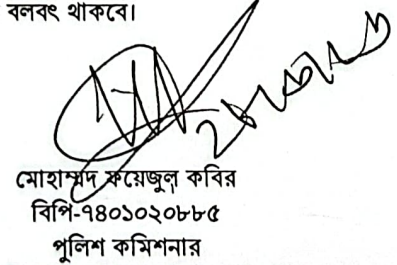 বলবৎ থাকবে।
মোহাম্মদ ফয়েজুল কবির
বিপি-৭৪০১০২০৮৮৫
পুলিশ কমিশনার